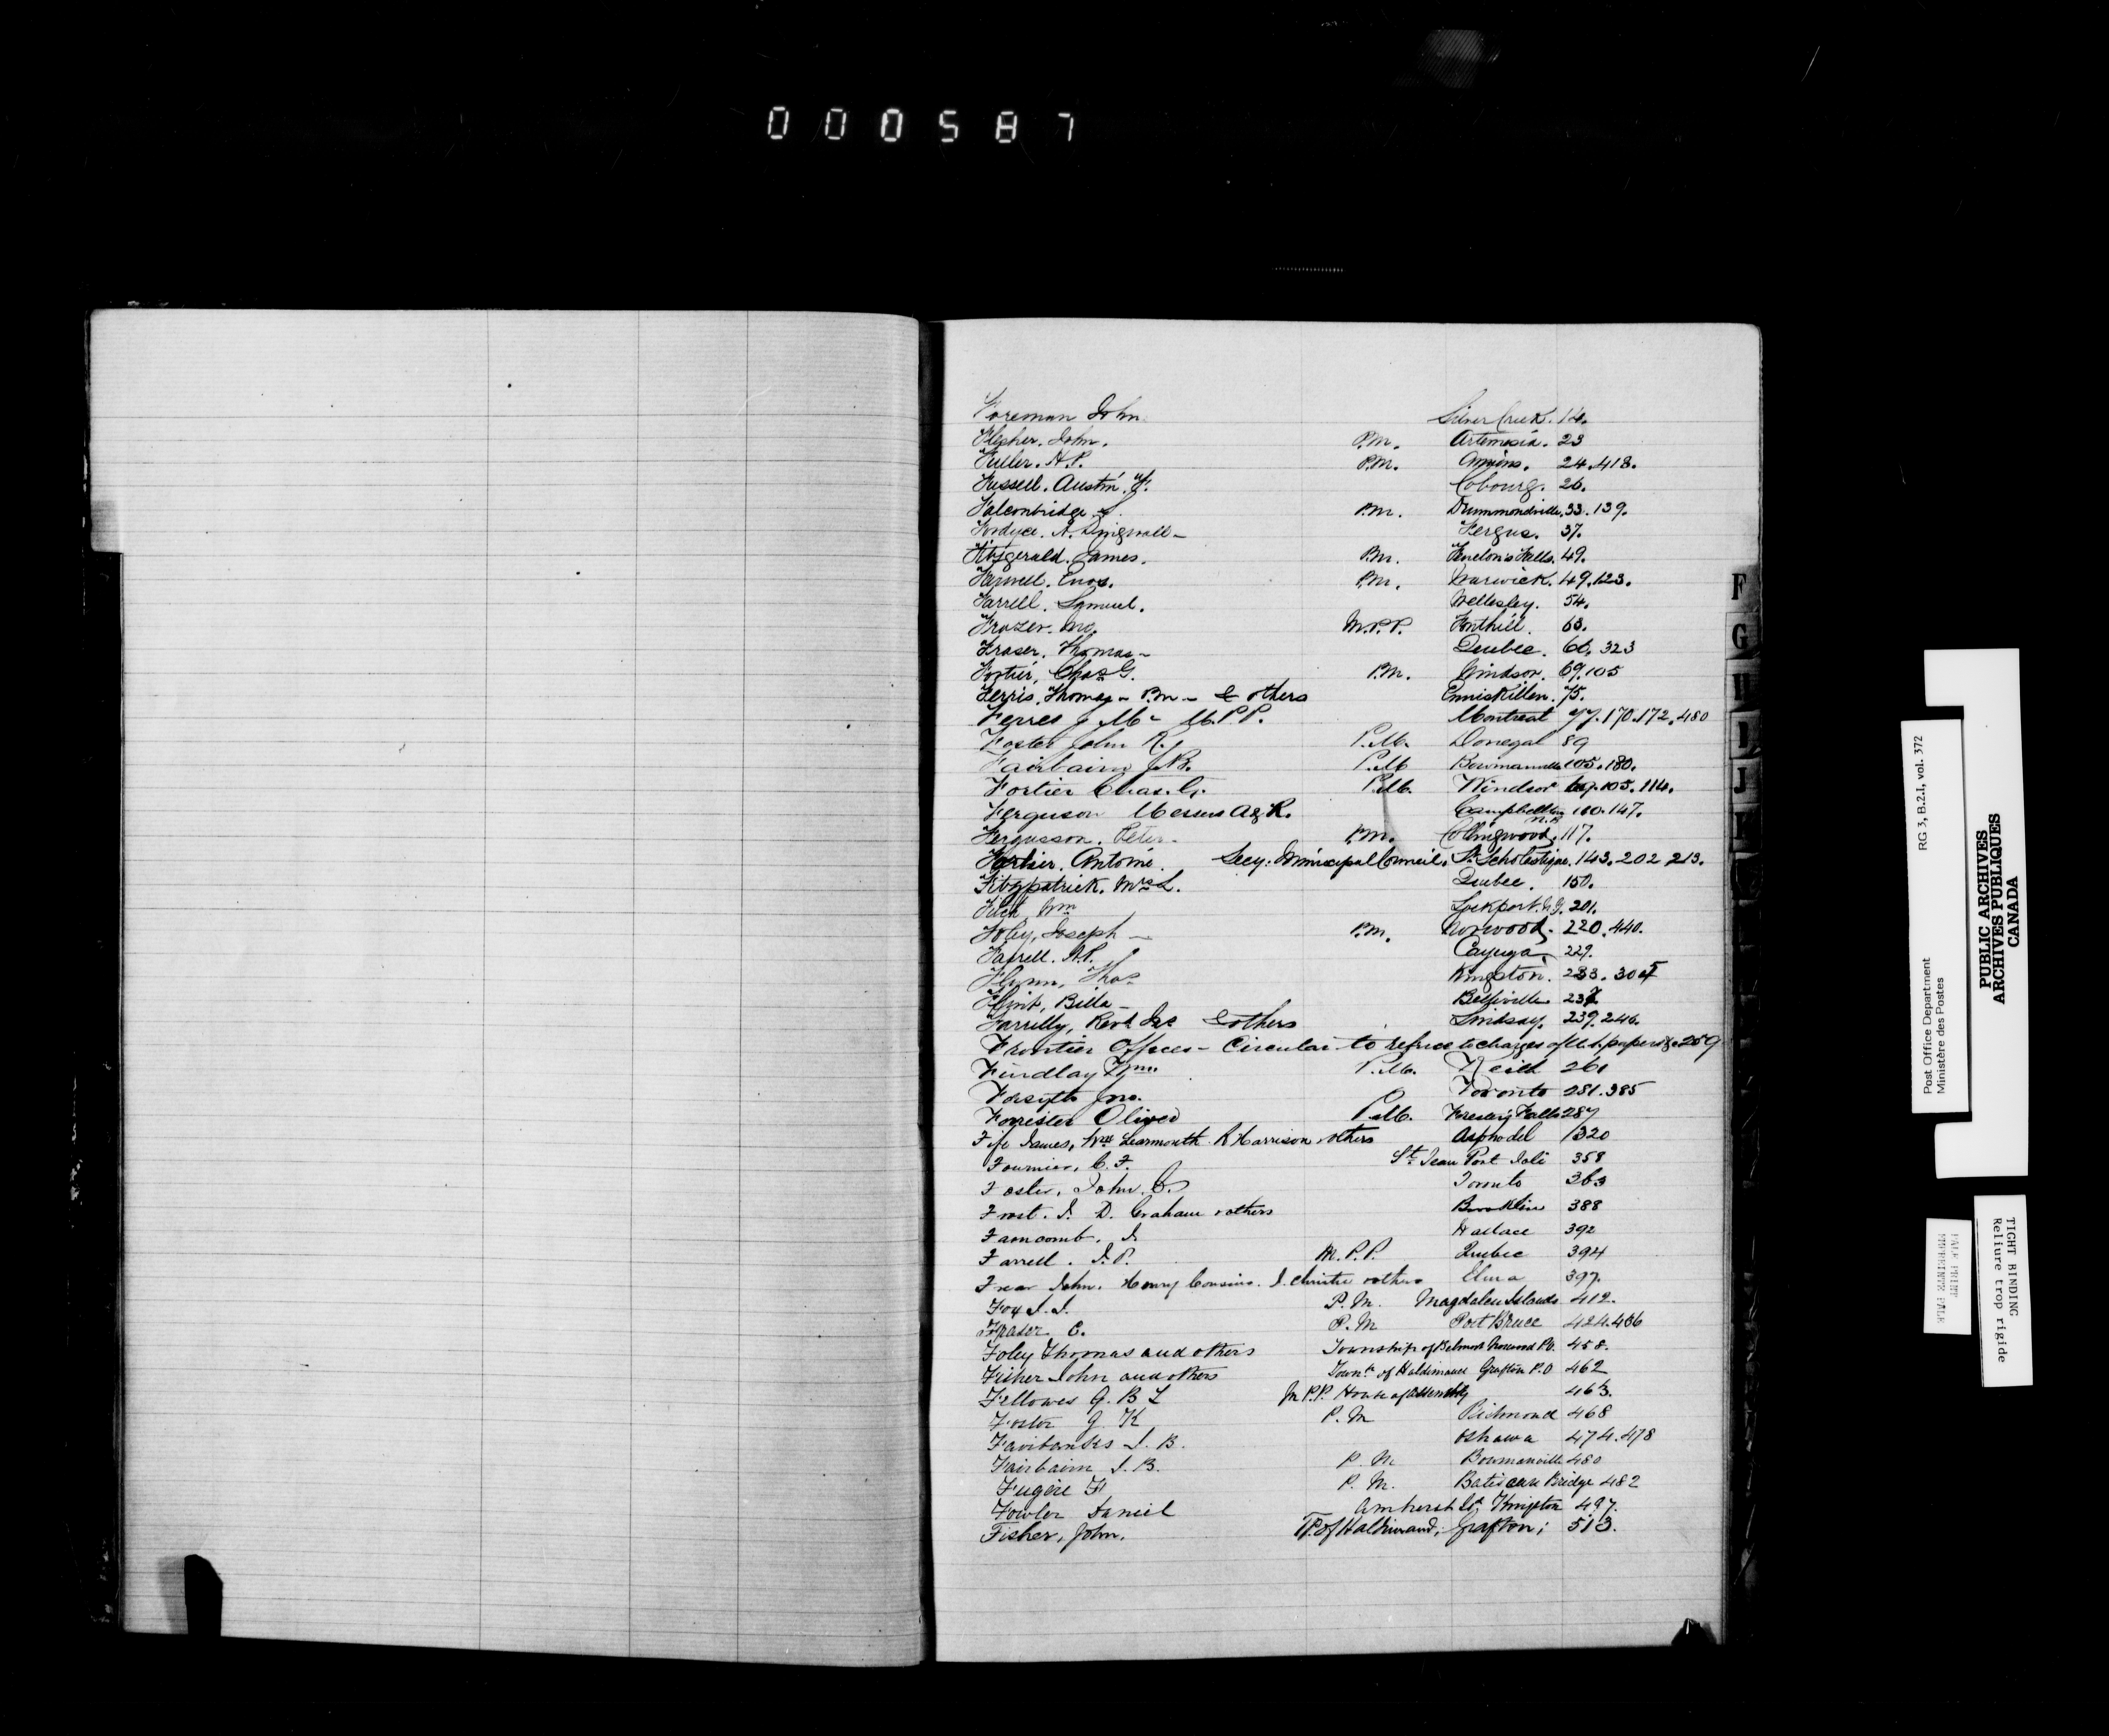 000587
Foreman John Silver Creek. 14.
Flesher. John. P.M. Artemesia. 23
Fuller. H.P. P.M. 24.418.
Fussell. Austin. Cobourg. 26.
Falconbridge. S. P.M. Drummondville. 33.139.
Fordyce. A. Dingwall - Fergus. 37.
Fitzgerald. James. P.M. Fenelon's Falls. 49.
Farwell. Enos. P.M. Warwick. 49.123.
Farrell. Samuel. Wellesley. 54.
Frazer. Jno. M.P.P. Fonthill. 63.
Fraser. Thomas - Quebec. 66. 323
Fortier, Chas G. P.M. Windsor. 69.105
Ferris. Thomas - P.M. - & others Enniskillen. 75.
Ferres J. Mc - M.P.P. Montreal 77.170.172.480
Foster John R. P.M. Donegal 89
Fairbairn J.B. P.M. Bowmanville 105.180.
Fortier Chas. G. P.M. Windsor 69.105.114.
Ferguson Messrs A & R. Campbellton N.B. 110.147.
Fergusson. Peter - P.M. Collingwood, 117.
Fortier. Antoine Secy: Municipal Council. St Scholastique. 143.202 213.
Fitzpatrick. Mrs L. Quebec. 150.
Wm Lockport. 201.
Foley, Joseph - P.M. Norwood. 220.440.
Farrell. A.P. Cayuga. 229.
Flynn, Thos Kingston. 233. 305
Flint, Billa - Belleville 237
Farrelly, Revd Jas & others Lindsay. 239.246.
Frontier Offices - Circular to refuse exchanges of U.S. papers &c 259
Findlay Wm P.M. Neith 261
Forsyth Jno. Toronto 281.385
Forrister Oliver P.M. Falls 287
Fife James, Wm Learmonth R Harrison & others Asphodel 1320
Fournier, C. F. St Jean Port Joli 358
Foster, John C. Toronto 363
Frost. J. D. Graham & others Brooklin 388
Farncomb. J. Wallace 392
Farrell. J. P. M.P.P. Quebec 394
Frear John. Henry Cousins. J. Christie & others Elma 397.
Fox J. J. P.M. Magdalen Islands 412.
Frazer C. P.M Port Bruce 424.436
Foley Thomas and others Township of Belmont Norwood P.O. 458.
Fisher John and others Townp of Haldimand Grafton P.O 462
Fellowes G. B L M.P.P. House of Assembly 463.
Foster G. K P.M Richmond 468
Fairbanks S. B. Oshawa 474.478
Fairbairn J. B. P. M Bowmanville 480
Fugère F P. M. Batiscan Bridge 482
Fowler Daniel Amherst Id Kingston 497.
Fisher, John. Tp. of Haldimand; Grafton; 513.
F
G
I
J
RG 3, B.2.I, vol. 372
Post Office Department
Ministère des Postes
PUBLIC ARCHIVES
ARCHIVES PUBLIQUES
CANADA
TIGHT BINDING
Reliure trop rigide
PALE PRINT
IMPRIMÉ PÂLE